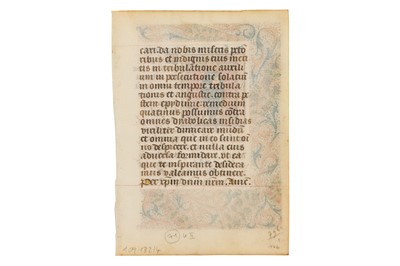 cari. da nobis miseris pcto
ribus et indignis eius meri
tis in tribulatione auxili
um in persecutione solatiū
in omni tempore tribula
tionis et angustie. contra pe
stem epydimie remedium
quatinus possumus cōtra
omnes dyabolicas insidias
viriliter dimicare mūdū
et omnia que in eo sunt cō
no despicere. et nulla eius
aduersa formidare. ut ea
que te inspirante desidera
mus valeamus obtinere.
Per xpm dnm nrm. Amē.